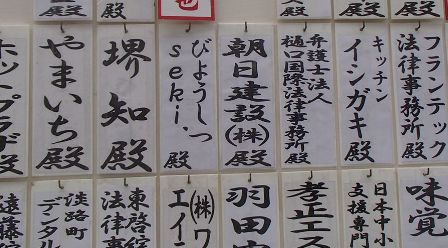 殿
殿
殿
殿
フランテック
法律事務所 殿
キッチン
インガキ 殿
弁護士法人
樋口国際法律事務所
殿
朝日建設㈱ 殿
びようしつ
seki. 殿
堺 知 殿
やまいち 殿
ホットプラザ 殿
味覚
日本中小
支援専門
孝正工
羽田
㈱ワ
エイ
東啓綜
法律事
淡路町
デンタル
遠藤綜